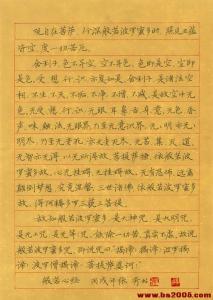 观自在菩萨，行深般若波罗蜜多时，照见五蕴
皆空，度一切苦厄。
舍利子，色不异空，空不异色，色即是空，空即
是色，受想行识，亦复如是。舍利子，是诸法空
相，不生不灭，不垢不净，不增不减，是故空中无
色，无受想行识，无眼耳鼻舌身意，无色声香
味触法，无眼界，乃至无意识界，无无明，亦无无
明尽，乃至无老死，亦无老死尽，无苦集灭道，
无智亦无得，以无所得故，菩提萨埵，依般若波
罗蜜多故，心无挂碍，无挂碍故，无有恐怖，远离
颠倒梦想，究竟涅槃，三世诸佛，依般若波罗蜜多
故，得阿耨多罗三藐三菩提。
故知般若波罗蜜多，是大神咒，是大明咒，
是无上咒，是无等等咒，能除一切苦，真实不虚，故说
般若波罗蜜多咒，即说咒曰：揭谛，揭谛，波罗揭
谛，波罗僧揭谛，菩提萨婆诃！
般若心经 丙戌年
www.bs2005.com